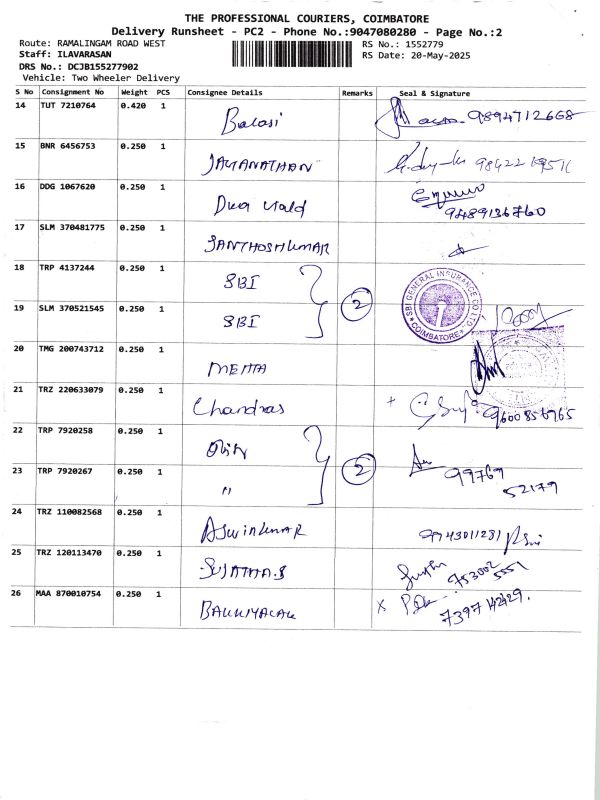 THE PROFESSIONAL COURIERS, COIMBATORE
Delivery Runsheet - PC2 - Phone No.:9047080280 - Page No.:2
Route: RAMALINGAM ROAD WEST
RS No.: 1552779
Staff: ILAVARASAN
RS Date: 20-May-2025
DRS No.: DCJB155277902
Vehicle: Two Wheeler Delivery
S No Consignment No Weight PCS Consignee Details Remarks Seal & Signature
14 TUT 7210764 0.420 1 Balaji 9894712668
15 BNR 6456753 0.250 1 JAYANATHAN
16 DDG 1067620 0.250 1 9489136760
17 SLM 370481775 0.250 1 SANTHOSHKUMAR
18 TRP 4137244 0.250 1 SBI 2
SBI GENERAL INSURANCE CO LTD COIMBATORE
19 SLM 370521545 0.250 1 SBI
20 TMG 200743712 0.250 1 MEHTA
21 TRZ 220633079 0.250 1 Chandras 9600856765
22 TRP 7920258 0.250 1 2
23 TRP 7920267 0.250 1 " 99769
52179
24 TRZ 110082568 0.250 1 ASWINKUMAR 9943011231
25 TRZ 120113470 0.250 1 SUJATHA.S 753002
5551
26 MAA 870010754 0.250 1 BAKKIYALAK X
7397142429.